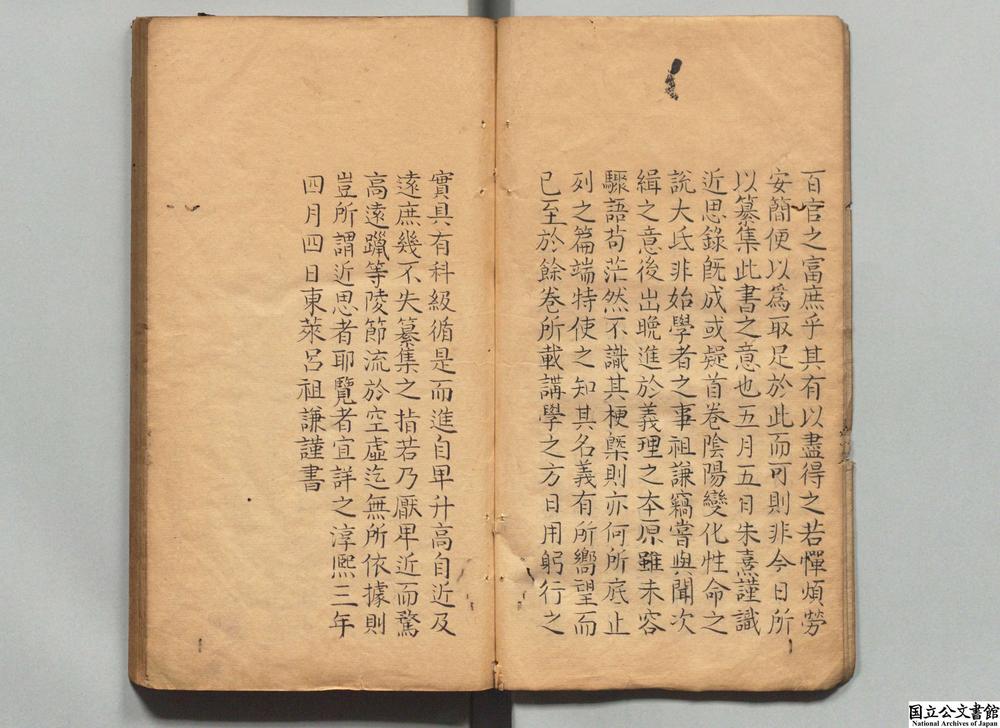 百官之富庶乎其有以盡得之若憚煩勞
安簡便以爲取足於此而可則非今日所
以纂集此書之意也五月五日朱熹謹識
近思錄旣成或疑首卷陰陽變化性命之
說大氐非始學者之事祖謙竊嘗與聞次
緝之意後出晚進於義理之本原雖未容
驟語苟茫然不識其梗槩則亦何所底止
列之篇端特使之知其名義有所嚮望而
已至於餘卷所載講學之方日用躬行之
實具有科級循是而進自卑升高自近及
遠庶幾不失纂集之指若乃厭卑近而騖
高遠躐等陵節流於空虛迄無所依據則
豈所謂近思者耶覽者宜詳之淳熙三年
四月四日東萊呂祖謙謹書
国立公文書館
National Archives of Japan